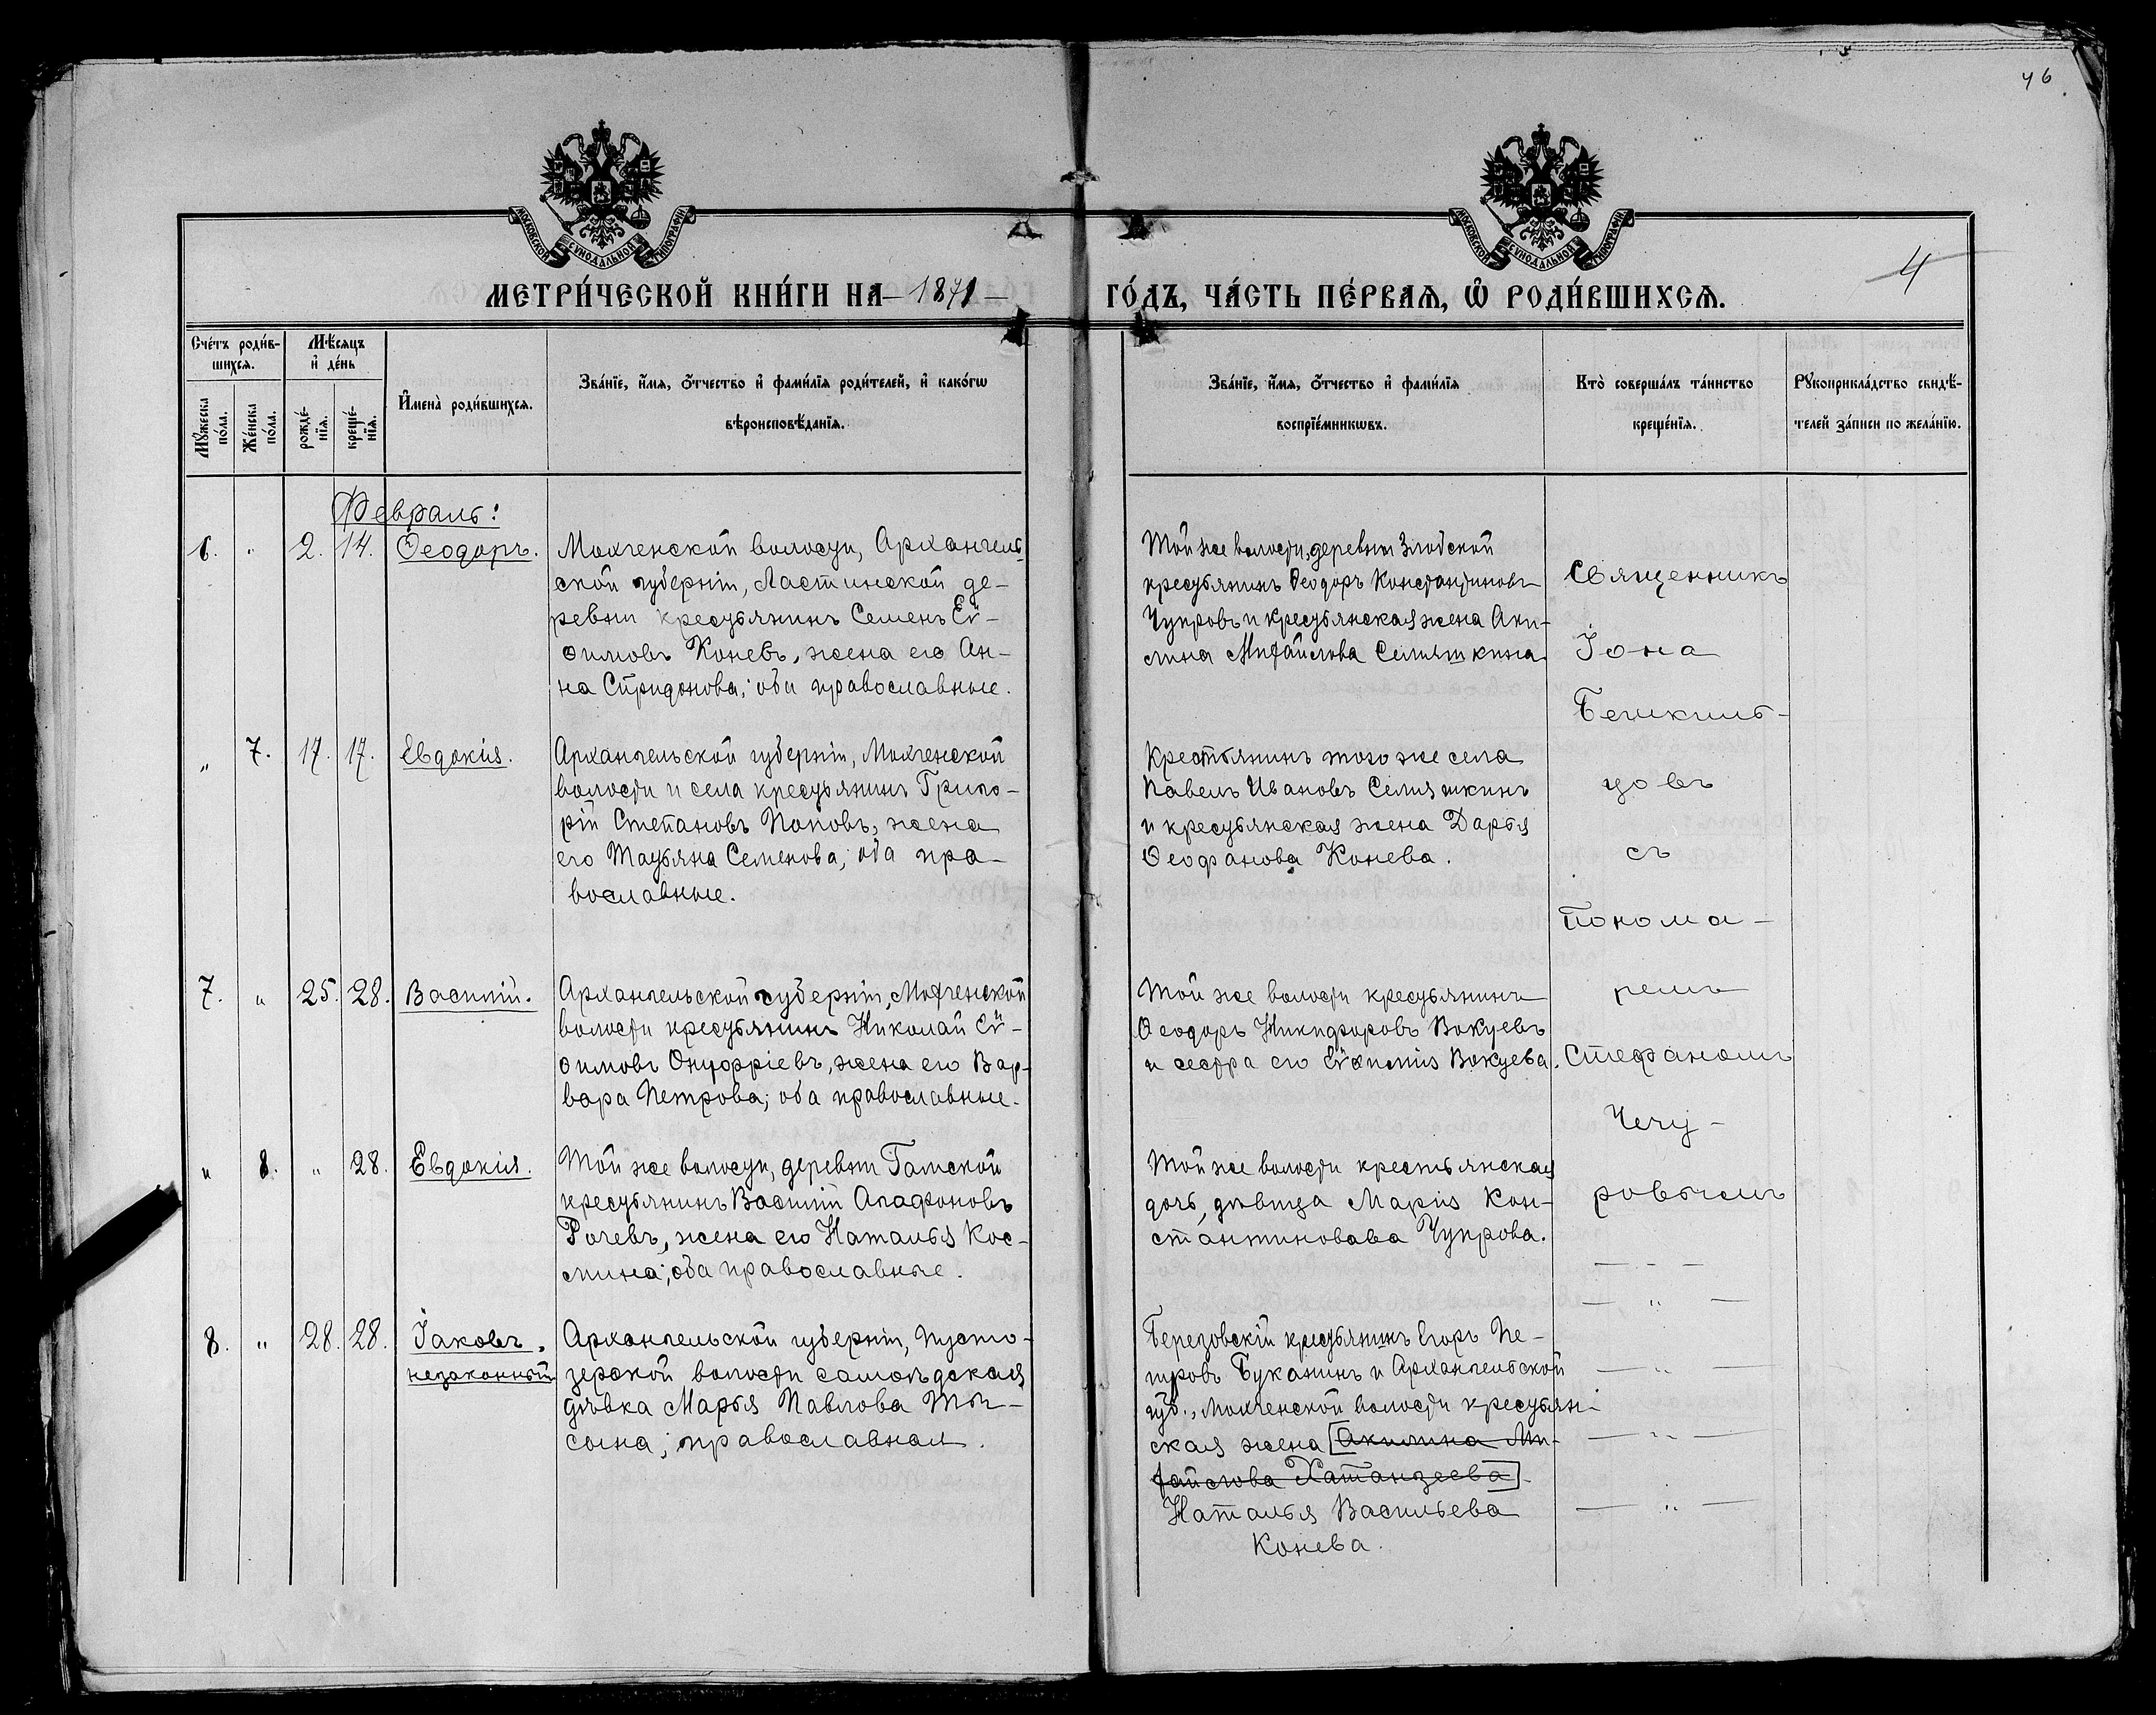 46
МОСКОВСКОЙ СѴНОДАЛЬНОЙ ТИПОГРАФІИ
МОСКОВСКОЙ СѴНОДАЛЬНОЙ ТИПОГРАФІИ
4
МЕТРИ́ЧЕСКОЙ КНИ́ГИ НА – 1871 –
ГО́ДЪ, ЧА́СТЬ ПЕ́РВАѦ, Ѽ РОДИ́ВШИХСѦ.
Сче́тъ роди́в-
шихсѧ.
Мꙋ́жеска по́ла.
Же́нска по́ла.
Мѣ́сѧцъ
и҆ де́нь
рожде́-
нїѧ.
креще́-
нїѧ.
И҆мена̀ роди́вшихсѧ.
Зва́нїе, и҆́мѧ, ѻ҆́тчество и҆ фами́лїѧ роди́телей, и҆ како́гѡ
вѣроисповѣ́данїѧ.
Зва́нїе, и҆́мѧ, ѻ҆́тчество и҆ фами́лїѧ
воспрїе́мникѡвъ.
Кто̀ соверша́лъ та́инство
креще́нїѧ.
Рꙋкоприкла́дство свидѣ́-
телей за́писи по жела́нїю.
Февраль:
6. " 2. 14. Ѳеодоръ.
Мохченской волости, Архангель-
ской губерніи, Ластинской де-
ревни крестьянинъ Семенъ Еѵ-
ѳимовъ Коневъ, жена его Ан-
на Спиридонова; оба православные.
Той же волости, деревни Злобской
крестьянинъ Ѳеодоръ Константиновъ
Чупровъ и крестьянская жена Аки-
лина Михайлова Семяшкина.
" 7. 17. 17. Евдокія.
Архангельской губерніи, Мохченской
волости и села крестьянинъ Григо-
рій Степановъ Поповъ, жена
его Татьяна Семенова; оба пра-
вославные.
Крестьянинъ того же села
Павелъ Ивановъ Семяшкинъ
и крестьянская жена Дарья
Ѳеофанова Конева.
7. " 25. 28. Василій.
Архангельской губерніи, Мохченской
волости крестьянинъ Николай Еѵ-
ѳимовъ Онуфріевъ, жена его Вар-
вара Петрова; оба православные.
Той же волости крестьянинъ
Ѳеодоръ Никифоровъ Вокуевъ
и сестра его Еѵѳимія Вокуева.
" 8. " 28. Евдокія.
Той же волости, деревни Гамской
крестьянинъ Василій Агафоновъ
Рочевъ, жена его Наталья Кос-
мина; оба православные.
Той же волости крестьянская
дочь, дѣвица Марія Кон-
стантиновава Чупрова.
8. " 28. 28. Іаковъ.
незаконный
Архангельской губерніи, Пусто-
зерской волости самоѣдская
дѣвка Марья Павлова Ты-
сына; православная.
Березовскій крестьянинъ Егоръ Пе-
тровъ Буканинъ и Архангельской
губ., Мохченской волости крестьян-
ская жена [Акилина Ми-
хайлова Хатанзеева].
Наталья Васильева
Конева.
Священникъ
Іона
Бешкиль-
цовъ
съ
понома-
ремъ
Стефаномъ
Чечу-
ровымъ
— - -
— " —
— " —
— " —
— " —